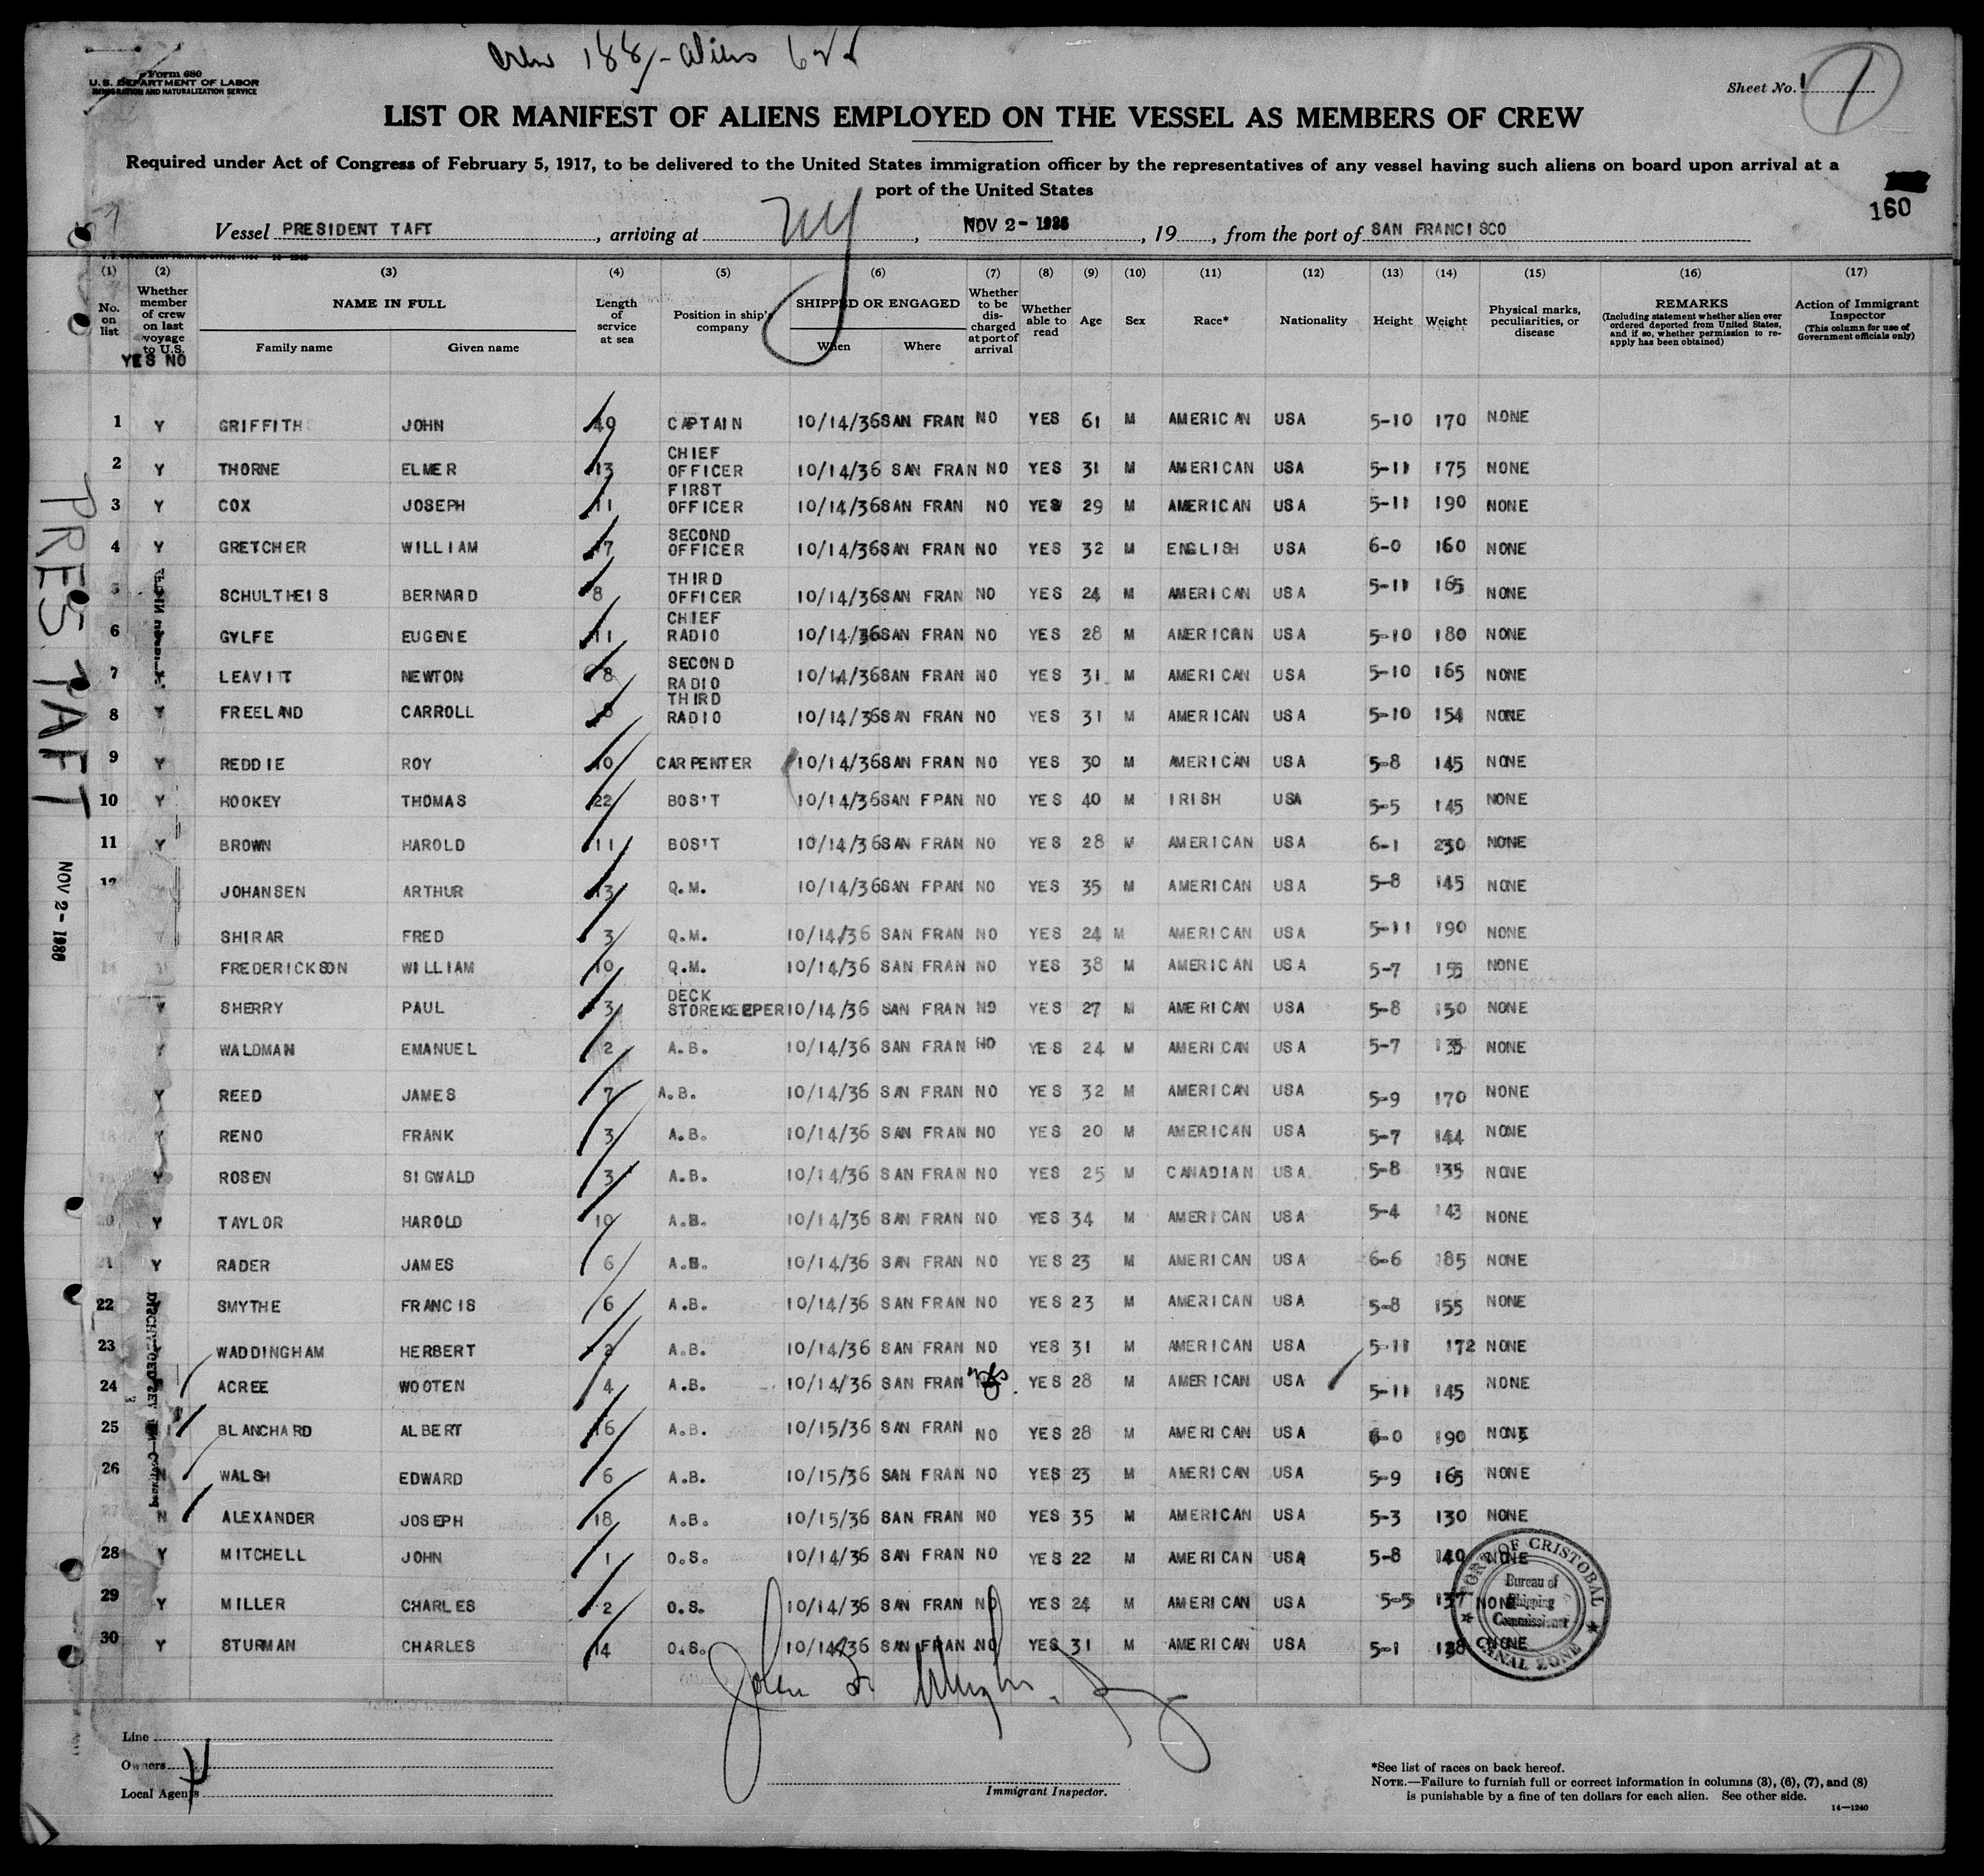 crew 188/- aliens 62
Form 680
U.S. DEPARTMENT OF LABOR
IMMIGRATION AND NATURALIZATION SERVICE
Sheet No. 1
1
LIST OR MANIFEST OF ALIENS EMPLOYED ON THE VESSEL AS MEMBERS OF CREW
Required under Act of Congress of February 5, 1917, to be delivered to the United States immigration officer by the representatives of any vessel having such aliens on board upon arrival at a
port of the United States
160
Vessel PRESIDENT TAFT, arriving at NY, NOV 2 - 1936, 19, from the port of SAN FRANCISCO
(1) (2) (3) (4) (5) (6) (7) (8) (9) (10) (11) (12) (13) (14) (15) (16) (17)
No. on list
Whether member of crew on last voyage to U.S.
YES NO
NAME IN FULL
Family name Given name
Length of service at sea
Position in ship's company
SHIPPED OR ENGAGED
When Where
Whether to be discharged at port of arrival
Whether able to read
Age
Sex
Race*
Nationality
Height
Weight
Physical marks, peculiarities, or disease
REMARKS
(Including statement whether alien ever ordered deported from United States, and if so, whether permission to reapply has been obtained)
Action of Immigrant Inspector
(This column for use of Government officials only)
1 Y GRIFFITH JOHN 49 CAPTAIN 10/14/36 SAN FRAN NO YES 61 M AMERICAN USA 5-10 170 NONE
2 Y THORNE ELMER 13 CHIEF OFFICER 10/14/36 SAN FRAN NO YES 31 M AMERICAN USA 5-11 175 NONE
3 Y COX JOSEPH 11 FIRST OFFICER 10/14/36 SAN FRAN NO YES 29 M AMERICAN USA 5-11 190 NONE
4 Y GRETCHER WILLIAM 17 SECOND OFFICER 10/14/36 SAN FRAN NO YES 32 M ENGLISH USA 6-0 160 NONE
5 SCHULTHEIS BERNARD 8 THIRD OFFICER 10/14/36 SAN FRAN NO YES 24 M AMERICAN USA 5-11 165 NONE
6 GYLFE EUGENE 11 CHIEF RADIO 10/14/36 SAN FRAN NO YES 28 M AMERICAN USA 5-10 180 NONE
7 LEAVITT NEWTON 8 SECOND RADIO 10/14/36 SAN FRAN NO YES 31 M AMERICAN USA 5-10 165 NONE
8 Y FREELAND CARROLL 8 THIRD RADIO 10/14/36 SAN FRAN NO YES 31 M AMERICAN USA 5-10 154 NONE
9 Y REDDIE ROY 10 CARPENTER 10/14/36 SAN FRAN NO YES 30 M AMERICAN USA 5-8 145 NONE
10 Y HOOKEY THOMAS 22 BOS'T 10/14/36 SAN FRAN NO YES 40 M IRISH USA 5-5 145 NONE
11 Y BROWN HAROLD 11 BOS'T 10/14/36 SAN FRAN NO YES 28 M AMERICAN USA 6-1 230 NONE
12 JOHANSEN ARTHUR 13 Q.M. 10/14/36 SAN FRAN NO YES 35 M AMERICAN USA 5-8 145 NONE
SHIRAR FRED 3 Q.M. 10/14/36 SAN FRAN NO YES 24 M AMERICAN USA 5-11 190 NONE
14 FREDERICKSON WILLIAM 10 Q.M. 10/14/36 SAN FRAN NO YES 38 M AMERICAN USA 5-7 155 NONE
Y SHERRY PAUL 3 DECK STOREKEEPER 10/14/36 SAN FRAN NO YES 27 M AMERICAN USA 5-8 150 NONE
Y WALDMAN EMANUEL 2 A.B. 10/14/36 SAN FRAN NO YES 24 M AMERICAN USA 5-7 135 NONE
Y REED JAMES 7 A.B. 10/14/36 SAN FRAN NO YES 32 M AMERICAN USA 5-9 170 NONE
18 Y RENO FRANK 3 A.B. 10/14/36 SAN FRAN NO YES 20 M AMERICAN USA 5-7 144 NONE
Y ROSEN SIGWALD 3 A.B. 10/14/36 SAN FRAN NO YES 25 M CANADIAN USA 5-8 135 NONE
20 Y TAYLOR HAROLD 10 A.B. 10/14/36 SAN FRAN NO YES 34 M AMERICAN USA 5-4 143 NONE
21 Y RADER JAMES 6 A.B. 10/14/36 SAN FRAN NO YES 23 M AMERICAN USA 6-6 185 NONE
22 SMYTHE FRANCIS 6 A.B. 10/14/36 SAN FRAN NO YES 23 M AMERICAN USA 5-8 155 NONE
23 WADDINGHAM HERBERT 2 A.B. 10/14/36 SAN FRAN NO YES 31 M AMERICAN USA 5-11 172 NONE
24 ACREE WOOTEN 4 A.B. 10/14/36 SAN FRAN yes YES 28 M AMERICAN USA 5-11 145 NONE
25 BLANCHARD ALBERT 16 A.B. 10/15/36 SAN FRAN NO YES 28 M AMERICAN USA 6-0 190 NONE
26 N WALSH EDWARD 6 A.B. 10/15/36 SAN FRAN NO YES 23 M AMERICAN USA 5-9 165 NONE
27 N ALEXANDER JOSEPH 18 A.B. 10/15/36 SAN FRAN NO YES 35 M AMERICAN USA 5-3 130 NONE
28 Y MITCHELL JOHN 1 O.S. 10/14/36 SAN FRAN NO YES 22 M AMERICAN USA 5-8 140 NONE
29 Y MILLER CHARLES 2 O.S. 10/14/36 SAN FRAN NO YES 24 M AMERICAN USA 5-5 137 NONE
30 Y STURMAN CHARLES 14 O.S. 10/14/36 SAN FRAN NO YES 31 M AMERICAN USA 5-1 128 NONE
PRES. TAFT
NOV 2 - 1936
PORT OF CRISTOBAL
Bureau of
Shipping
Commissioner
CANAL ZONE
Line
Owners
Local Agents
Immigrant Inspector.
*See list of races on back hereof.
NOTE.—Failure to furnish full or correct information in columns (3), (6), (7), and (8)
is punishable by a fine of ten dollars for each alien. See other side.
14—1240